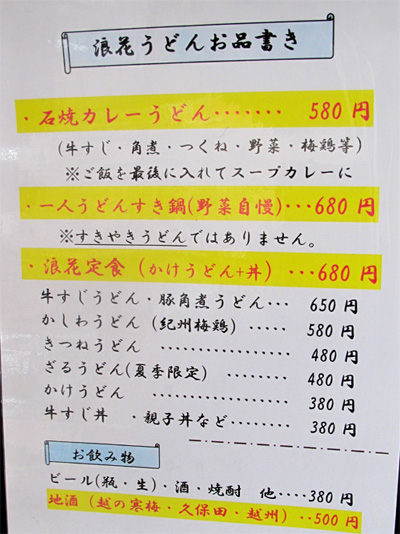 浪花うどんお品書き
・石焼カレーうどん・・・・・・・ 580円
(牛すじ・角煮・つくね・野菜・梅鶏等)
※ご飯を最後に入れてスープカレーに
・一人うどんすき鍋(野菜自慢)・・・680円
※すきやきうどんではありません。
・浪花定食(かけうどん+丼)・・・680円
牛すじうどん・豚角煮うどん・・・ 650円
かしわうどん(紀州梅鶏) ・・・・・ 580円
きつねうどん ・・・・・・ 480円
ざるうどん(夏季限定) ・・・・・・ 480円
かけうどん ・・・・・・ 380円
牛すじ丼 ・親子丼など・・・・ 380円
お飲み物
ビール(瓶・生)・酒・焼酎 他・・・・380円
地酒(越の寒梅・久保田・越州)・・500円